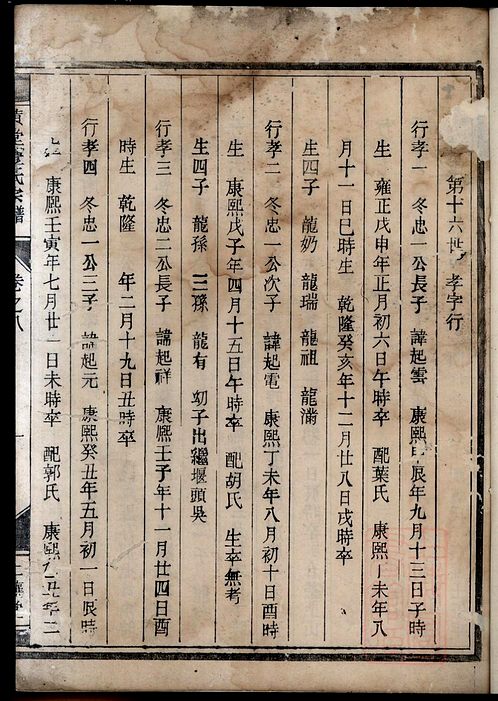 第十六世 孝字行
行孝一 冬忠一公長子 諱起雲 康熙甲辰年九月十三日子時
生 雍正戊申年正月初六日午時卒 配葉氏 康熙丁未年八
月十一日巳時生 乾隆癸亥年十二月廿八日戌時卒
生四子 龍奶 龍瑞 龍祖 龍滿
行孝二 冬忠一公次子 諱起電 康熙丁未年八月初十日酉時
生 康熙戊子年四月十五日午時卒 配胡氏 生卒無考
生四子 龍孫 三孫 龍有 幼子出繼堰頭吳
行孝三 冬忠二公長子 諱起祥 康熙壬子年十一月廿四日酉
時生 乾隆 年二月十九日丑時卒
行孝四 冬忠一公三子 諱起元 康熙癸丑年五月初一日辰時
生 康熙壬寅年七月廿二日未時卒 配郭氏 康熙 丑年二
堂 氏宗譜 卷之八 一